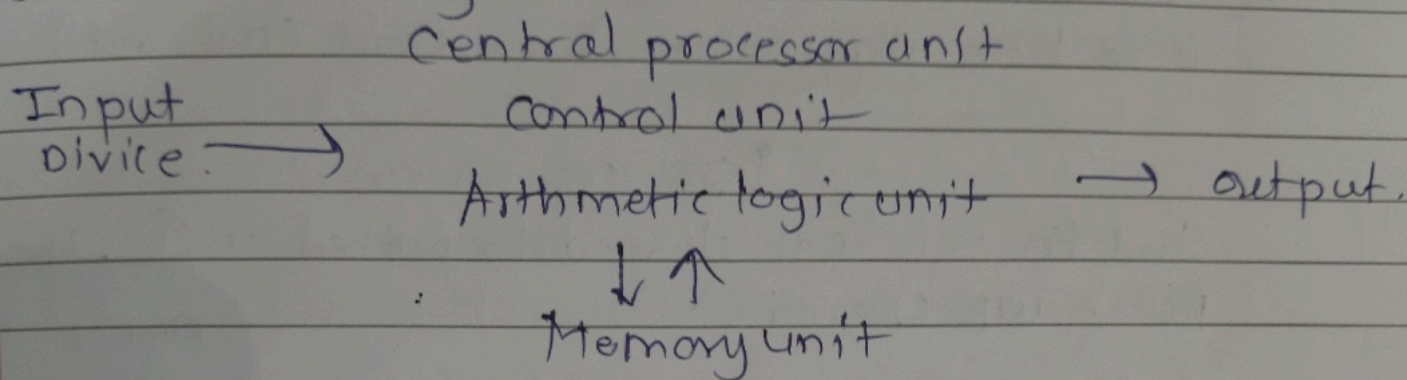 Central processor unit
Input
Divice. →
Control unit
Arthmetic logic unit → output.
↓ ↑
Memory unit